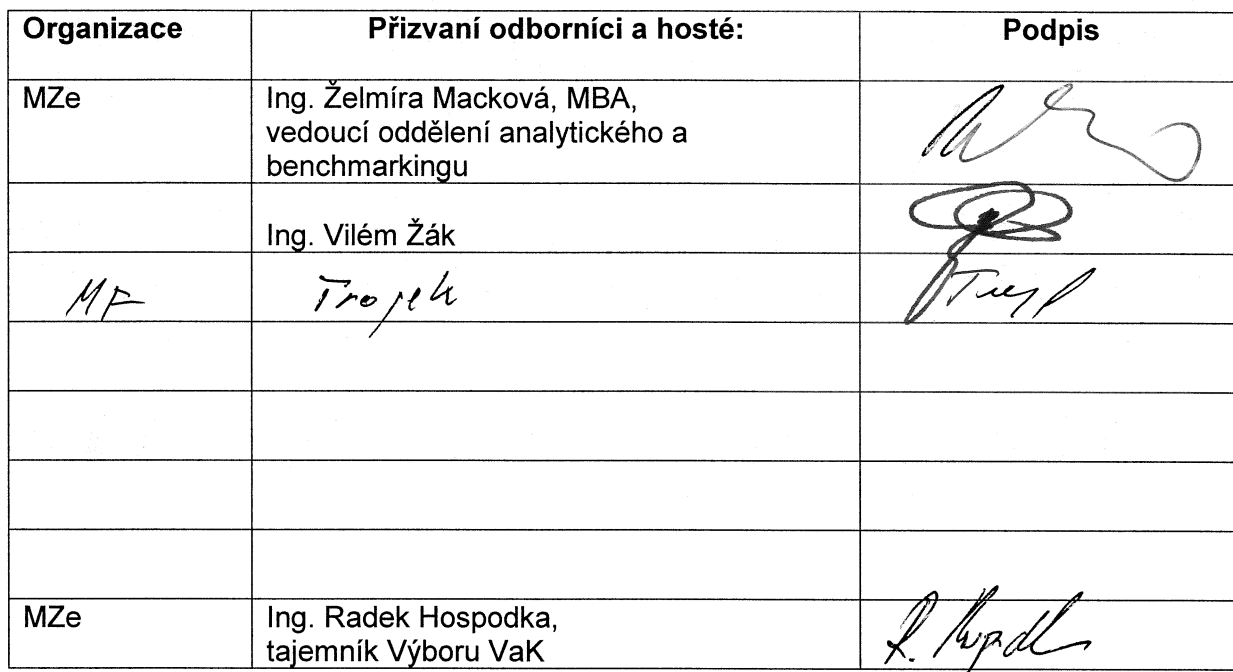 Organizace Přizvaní odborníci a hosté: Podpis
MZe Ing. Želmíra Macková, MBA,
vedoucí oddělení analytického a
benchmarkingu
Ing. Vilém Žák
MF Trojek
MZe Ing. Radek Hospodka,
tajemník Výboru VaK